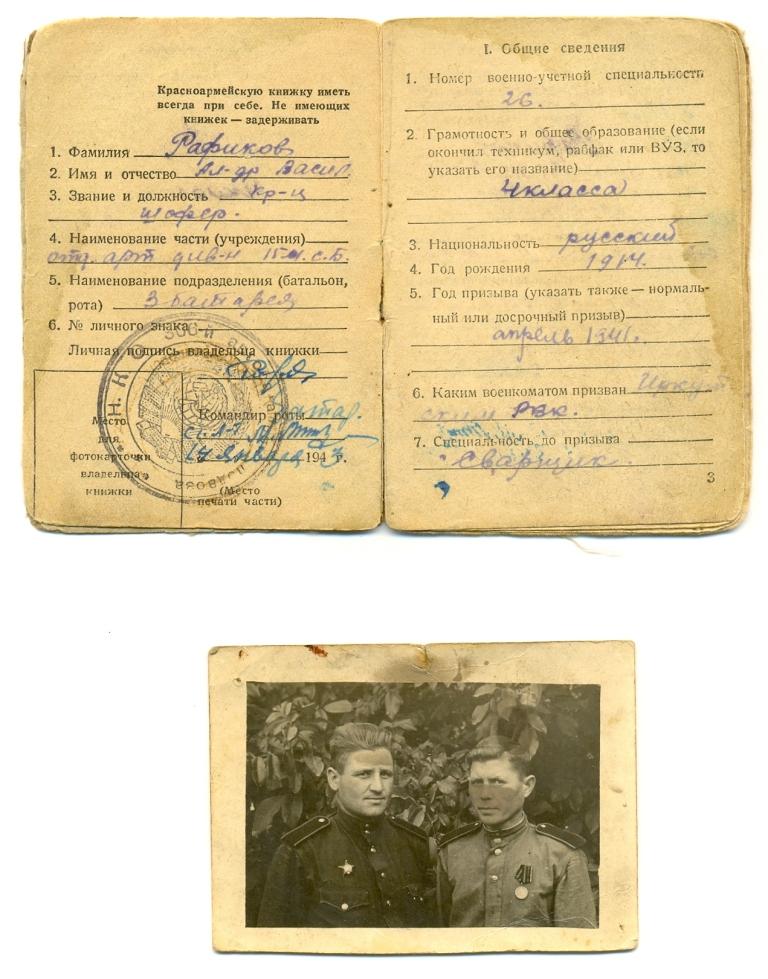 Красноармейскую книжку иметь
всегда при себе. Не имеющих
книжек — задерживать
1. Фамилия Рафиков
2. Имя и отчество Ал-др Васил
3. Звание и должность кр-ц
шофер.
4. Наименование части (учреждения)
отд. арт див-н 15 с.б.
5. Наименование подразделения (батальон,
рота) 3 батарея
6. № личного знака
Личная подпись владельца книжки
Место
для
фотокарточки
владельца
книжки
Командир роты
ст. л-т
14 января 1943 г.
(Место
печати части)
Н. К. О. 306-й
I. Общие сведения
1. Номер военно-учетной специальности
26.
2. Грамотность и общее образование (если
окончил техникум, рабфак или ВУЗ, то
указать его название)
4 класса
3. Национальность русский
4. Год рождения 1914.
5. Год призыва (указать также — нормаль-
ный или досрочный призыв)
апрель 1941.
6. Каким военкоматом призван Иркут
ским РВК.
7. Специальность до призыва
Сварщик.
3